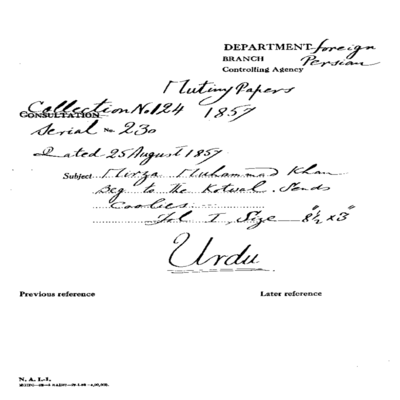 DEPARTMENT Foreign
BRANCH Persian
Controlling Agency
Mutiny Papers
Collection No. 124 1857
CONSULTATION
Serial No 230
Dated 25 August 1857
Subject Mirza Muhammad Khan
Beg to the Kotwal. Sends
Coolies.
Fol I, Size — 8½" x 3"
Urdu
Previous reference
Later reference
N. A. I.-1.